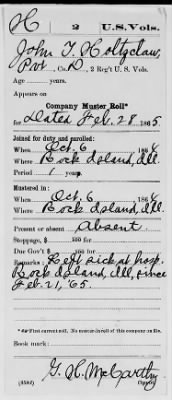 H 2 U.S. Vols.
John T. Holtzclaw,
Pvt, Co. D, 2 Reg't U. S. Vols.
Age years.
Appears on
Company Muster Roll*
for Dated Feb. 28, 1865
Joined for duty and enrolled:
When Oct. 6, 1864
Where Rock Island, Ill.
Period 1 years.
Mustered in:
When Oct. 6, 1864
Where Rock Island, Ill.
Present or absent Absent
Stoppage, $ 100 for
Due Gov't $ 100 for
Remarks: Left sick at hosp.
Rock Island, Ill, since
Feb. 21, '65.
Book mark:
G. H. McCarthy
(358d) Copyist.